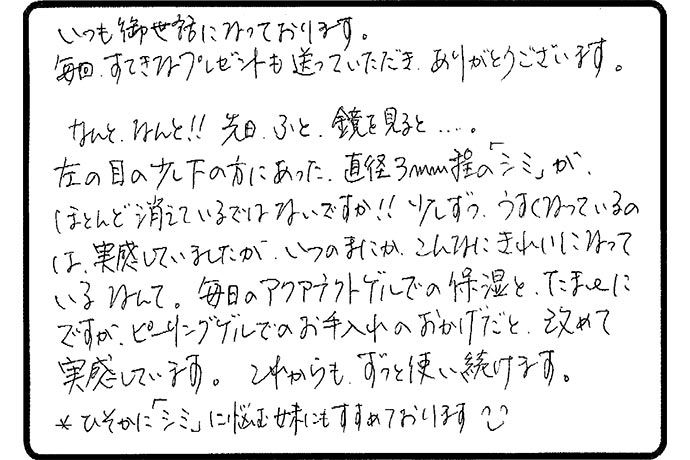 いつも御世話になっております。
毎回、すてきなプレゼントも送っていただき、ありがとうございます。
なんと、なんと!! 先日、ふと、鏡を見ると….。
左の目の少し下の方にあった、直径3mm程の「シミ」が、
ほとんど消えているではないですか!! 少しずつ、うすくなっているの
は、実感していましたが、いつのまにか、こんなにきれいになって
いるなんて。毎日のアクアテクトゲルでの保湿と、たまに
ですが、ピーリングゲルでのお手入れのおかげだと、改めて
実感しています。これからも、ずっと使い続けます。
*ひそかに「シミ」に悩む妹にもすすめております